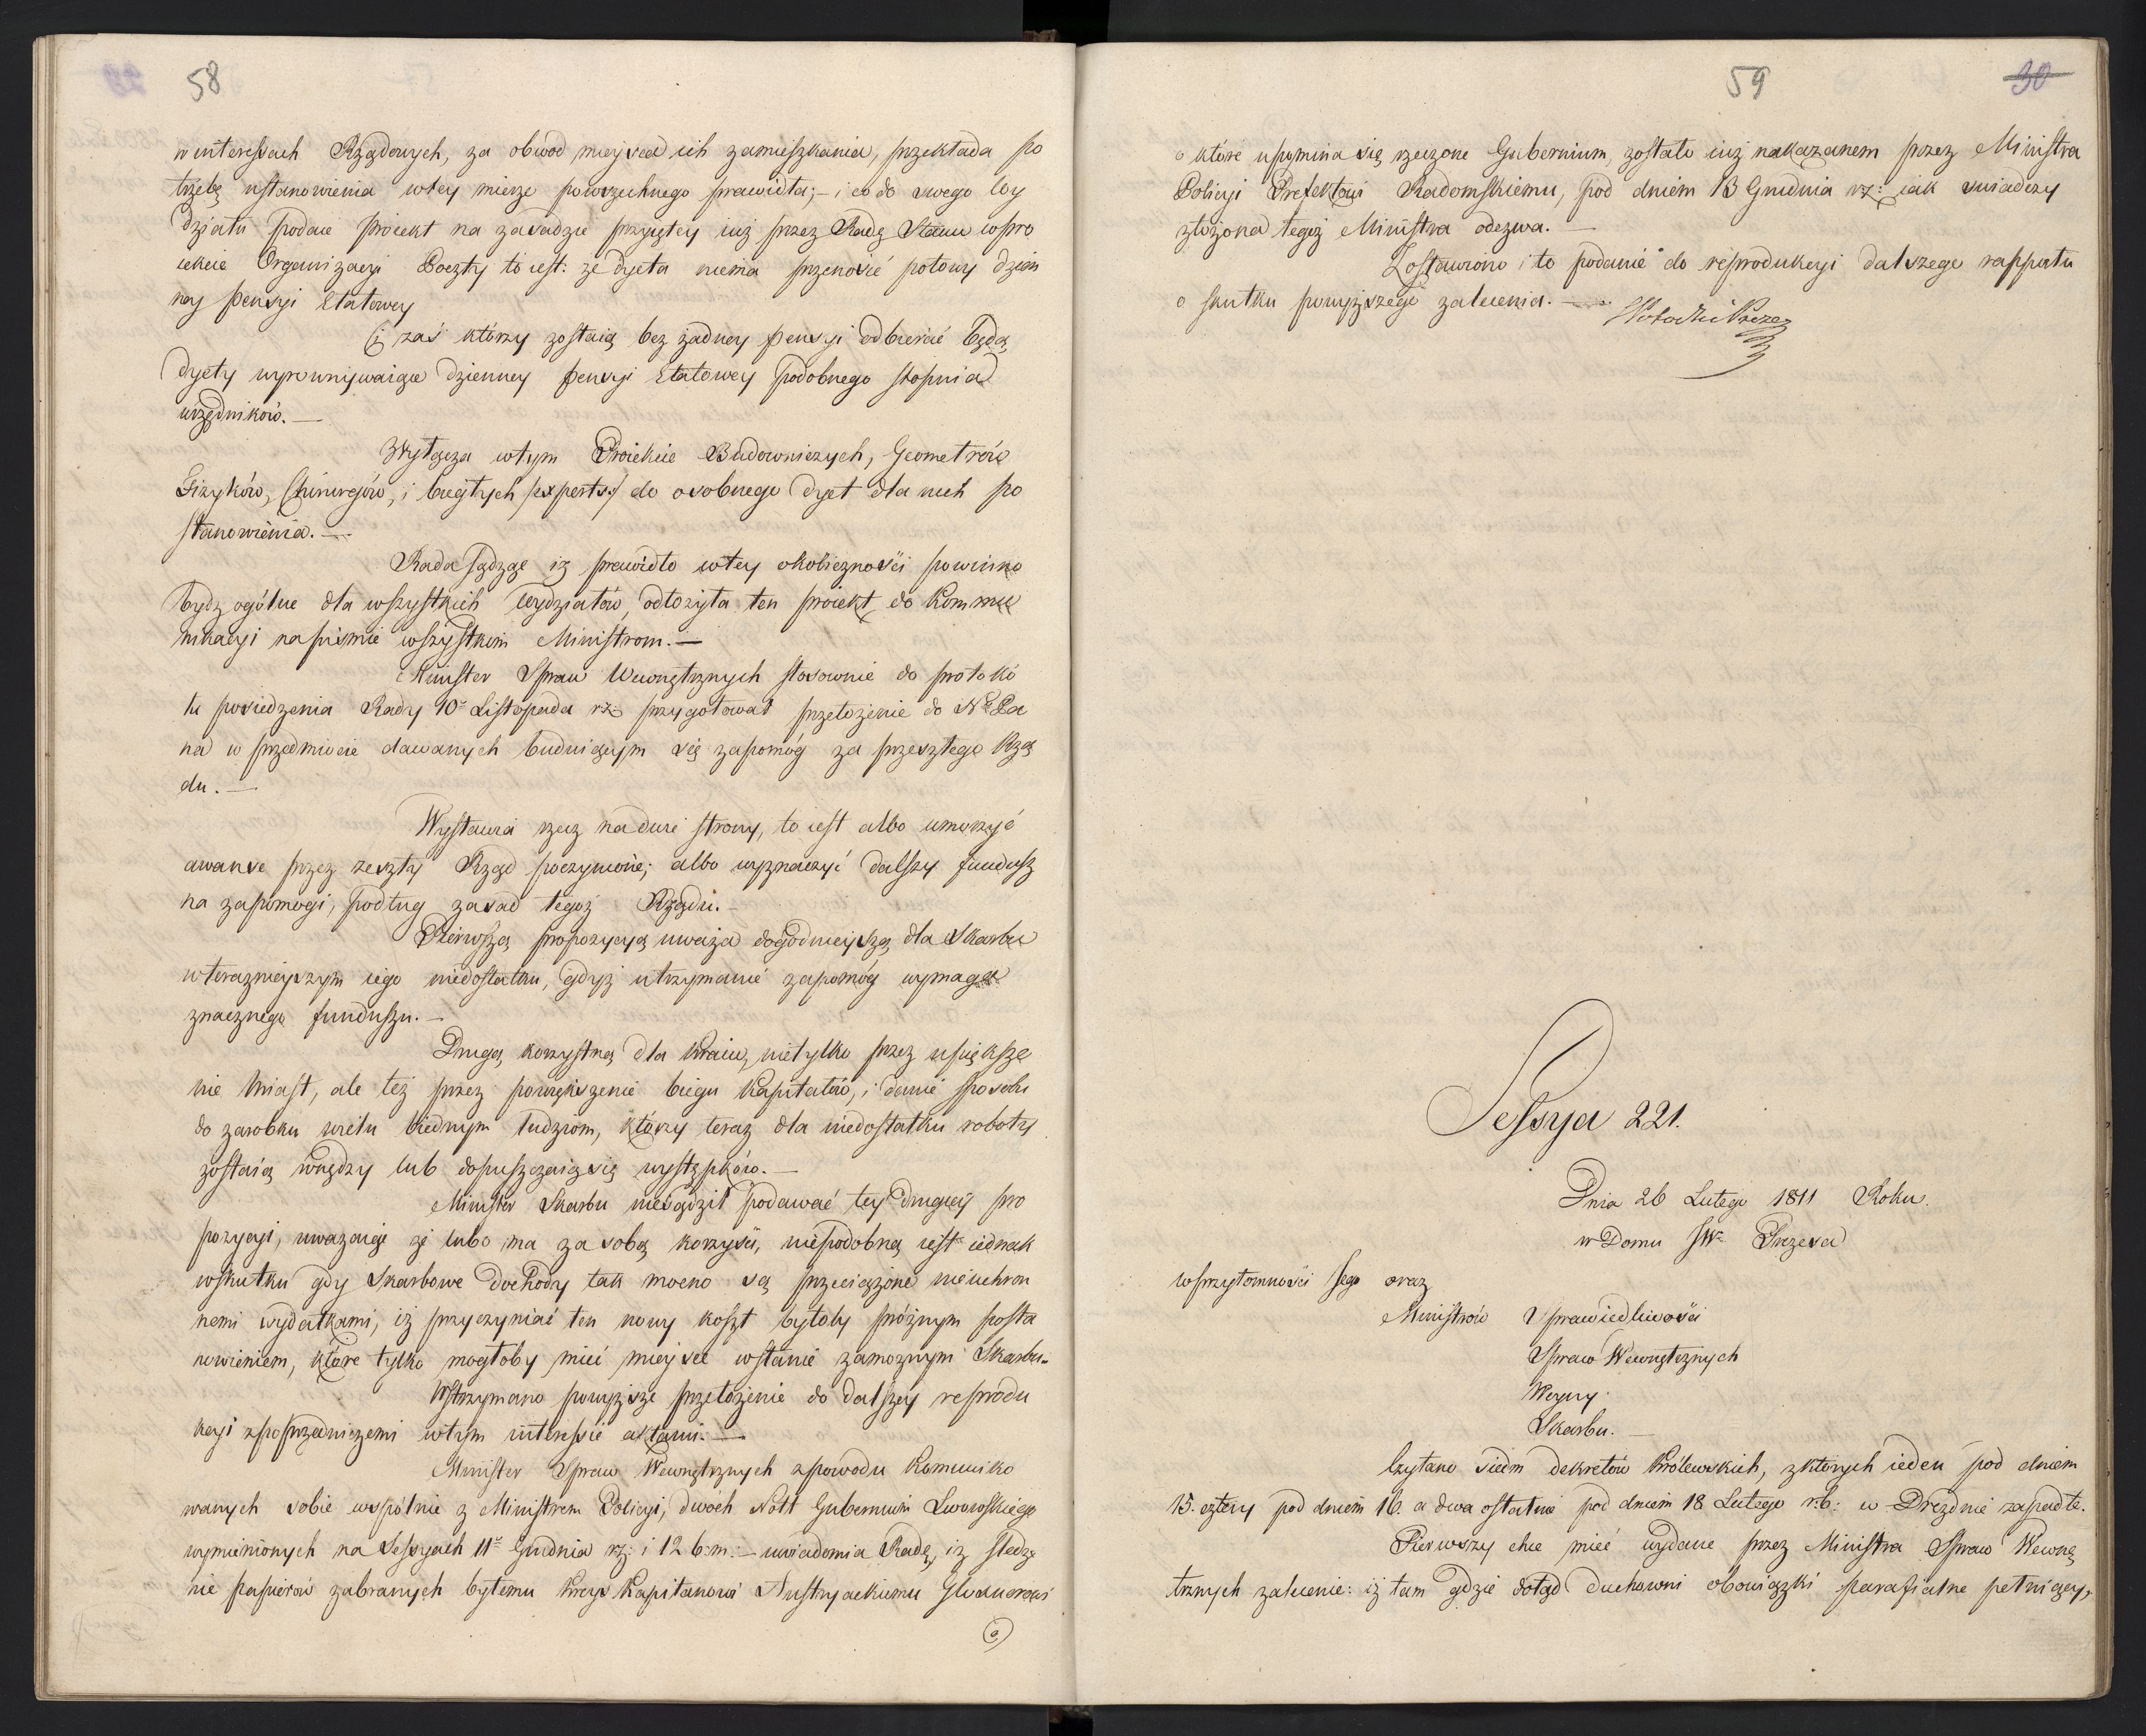 58
w interessach Rządowych, za obwod mieysca ich zamieszkania, przekłada po
trzebę ustanowienia wtey mierze powszechnego prawidła; - i co do swego Wy
działu podaie proiekt na zasadzie przyiętey iuż przez Radę Stanu wpro
iekcie Organizacyi Poczty to iest: że dyeta niema przenosić połowy dzien
ney pensyi Etatowey
Ci zaś którzy zostaią bez żadney pensyi odbierać będą
dyety wyrownywaiące dzienney pensyi Etatowey podobnego stopnia
urzędników. —
Wyłącza wtym Proiekcie Budowniczych, Geometrów
Fizyków, Chirurgów, i biegłych /: experts :/ do osobnego dyet dla nich po
stanowienia. —
Rada sądząc iż prawidło wtey okoliczności powinno
bydz ogólne dla wszystkich Wydziałów, odłożyła ten proiekt do Kommu
nikacyi na piśmie wszystkim Ministrom. —
Minister Spraw Wewnętrznych stosownie do protokó
łu posiedzenia Rady 10º Listopada rz: przygotował przełożenie do Nº Pa
na w przedmiocie dawanych buduiącym się zapomóg za przeszłego Rzą
du. —
Wystawia rzecz na dwie strony, to iest albo umorzyć
awanse przez zeszły Rząd poczynione; albo wyznaczyć dalszy fundusz
na zapomogi, podług zasad tegoż Rządu. —
Pierwszą propozycyą uważa dogodnieyszą dla Skarbu
w teraznieyszym iego niedostatku, gdyż utrzymanie zapomóg wymaga
znacznego funduszu. —
Drugą korzystną dla kraiu, nietylko przez upiększe
nie Miast, ale też przez powiększenie biegu Kapitałów, i danie sposobu
do zarobku wielu biednym ludziom, którzy teraz dla niedostatku roboty
zostaią wnędzy lub dopuszczaią się występków. —
Minister Skarbu niesądził podawać tey drugiey pro
pozycyi, uważaiąc że lubo ma za sobą korzyści, niepodobną iest iednak
wskutku gdy Skarbowe dochody tak mocno są przeciążone nieuchron
nemi wydatkami, iż przyczyniać ten nowy koszt byłoby próżnym posta
nowieniem, które tylko mogłoby mieć mieysce wstanie zamożnym Skarbu.
Wstrzymano powyższe przełożenie do dalszey reprodu
kcyi z poprzedniczemi wtym interessie aktami. —
Minister Spraw Wewnętrznych z powodu Komuniko
wanych sobie wspólnie z Ministrem Policyi, dwóch Nott Gubernium Lwowskiego
wymienionych na Sessyach 11º Grudnia rz: i 12 b: m: — uwiadomia Radę, iż śledze
nie papierów zabranych byłemu Kreys Kapitanowi Austryackiemu
o
59
30
o które upomina się rzeczone Gubernium, zostało iuż nakazanem przez Ministra
Policyi Prefektowi Radomskiemu, pod dniem 13 Grudnia rz: iak świadczy
złożona tegoż Ministra odezwa. —
Zostawiono i to podanie do reprodukcyi dalszego rapportu
o skutku powyższego zalecenia. —
Sessya 221.
Dnia 26 Lutego 1811 Roku.
w Domu JWº Prezesa
w przytomności Jego oraz
Ministrów Sprawiedliwości
Spraw Wewnętrznych
Woyny
Skarbu. —
Czytano siedm dekretów Królewskich, z których ieden pod dniem
15. cztery pod dniem 16. a dwa ostatnie pod dniem 18 Lutego r: b: w Dreznie zapadłe.
Pierwszy chce mieć wydane przez Ministra Spraw Wewnę
trznych zalecenie: iż tam gdzie dotąd duchowni obowiązki parafialne pełniący,